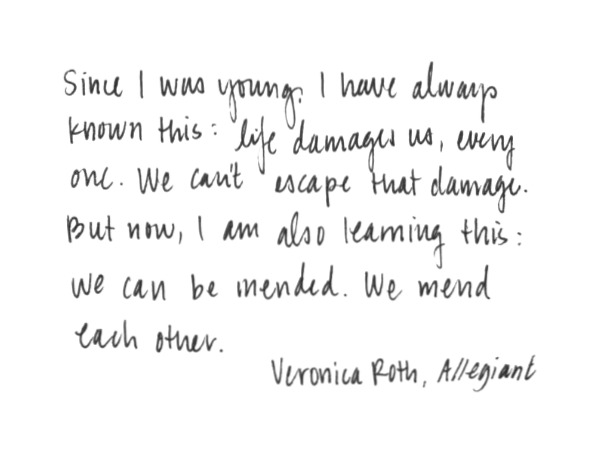 Since I was young, I have always
known this: life damages us, every
one. We can't escape that damage.
But now, I am also learning this:
We can be mended. We mend
each other.
Veronica Roth, Allegiant